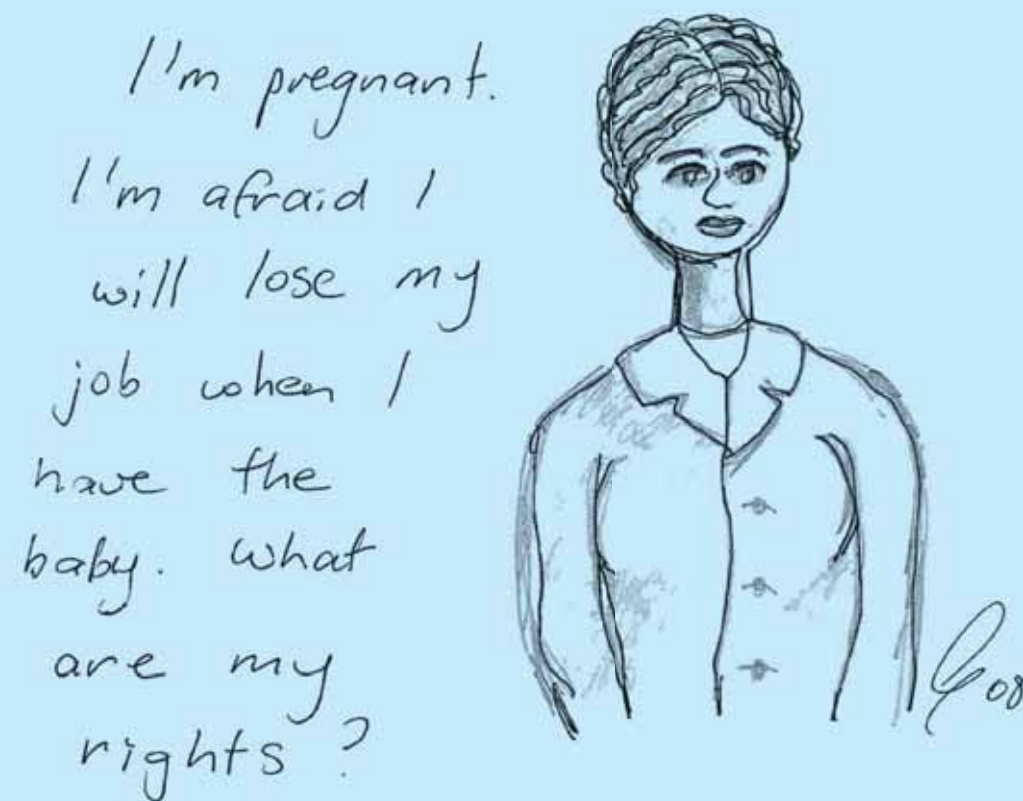 I'm pregnant.
I'm afraid I
will lose my
job when I
have the
baby. What
are my
rights?
08